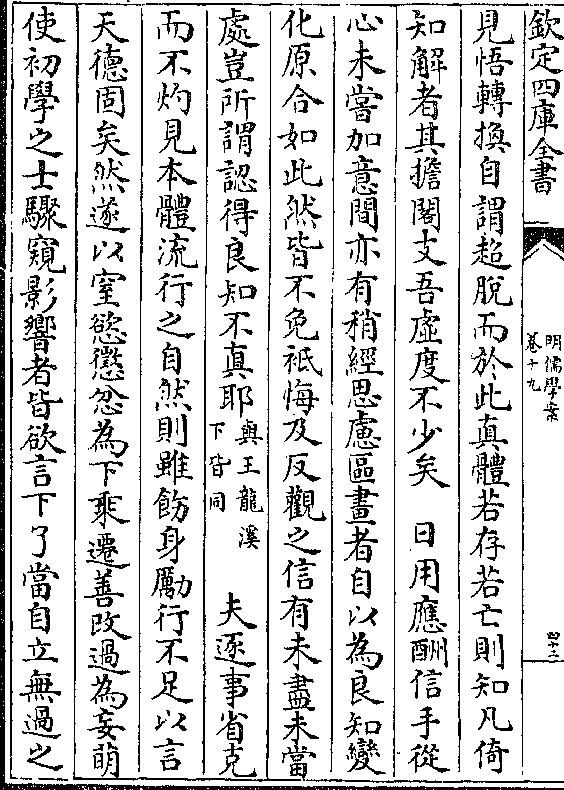 欽定四庫全書
明儒學案
卷十九
四十三
見悟轉換自謂超脫而於此真體若存若亡則知凡倚
知解者其擔閣支吾虛度不少矣　日用應酬信手從
心未嘗加意間亦有稍經思慮區畫者自以為良知變
化原合如此然皆不免祗悔及反觀之信有未盡未當
處豈所謂認得良知不真耶與王龍溪下皆同　夫逐事省克
而不灼見本體流行之自然則雖飭身勵行不足以言
天德固矣然遂以窒慾懲忿為下乘遷善改過為妄萌
使初學之士驟窺影響者皆欲言下了當自立無過之